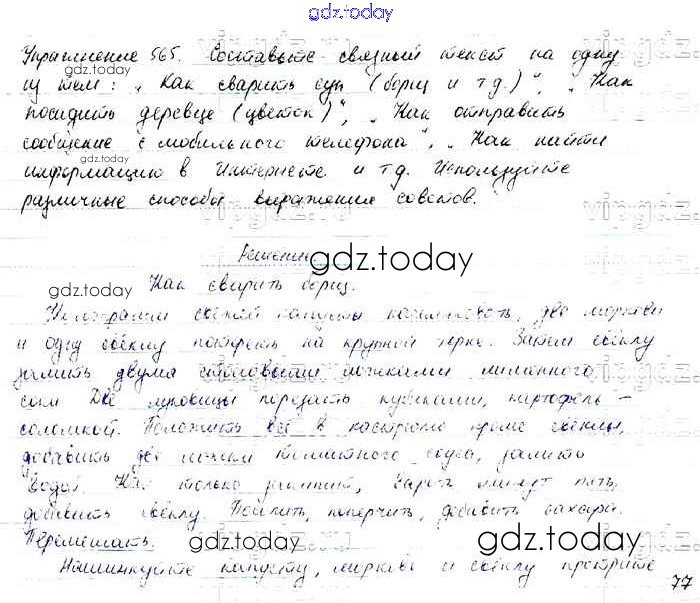 gdz.today
Упражнение 565. Составьте связный текст на одну
из тем: „Как сварить суп (борщ и т.д.)", „Как
посадить деревце (цветок)", „Как отправить
сообщение с мобильного телефона", „Как найти
информацию в Интернете и т.д. Используйте
различные способы выражения советов.
gdz.today
Решение
gdz.today
Как сварить борщ.
gdz.today
свежей капусты нашинковать, две моркови
и одну свёклу потереть на крупной терке. Затем свёклу
залить двумя столовыми ложками лимонного
сока. Две луковицы порезать кубиками, картофель –
соломкой. Положить всё в кастрюлю кроме свёклы,
добавить две ложки томатного соуса, залить
водой. Как только закипит, варить минут пять,
добавить свёклу. Посолить, поперчить, добавить сахара.
Перемешать.
gdz.today
gdz.today
Нашинкуйте капусту, морковь и свёклу протрите
77